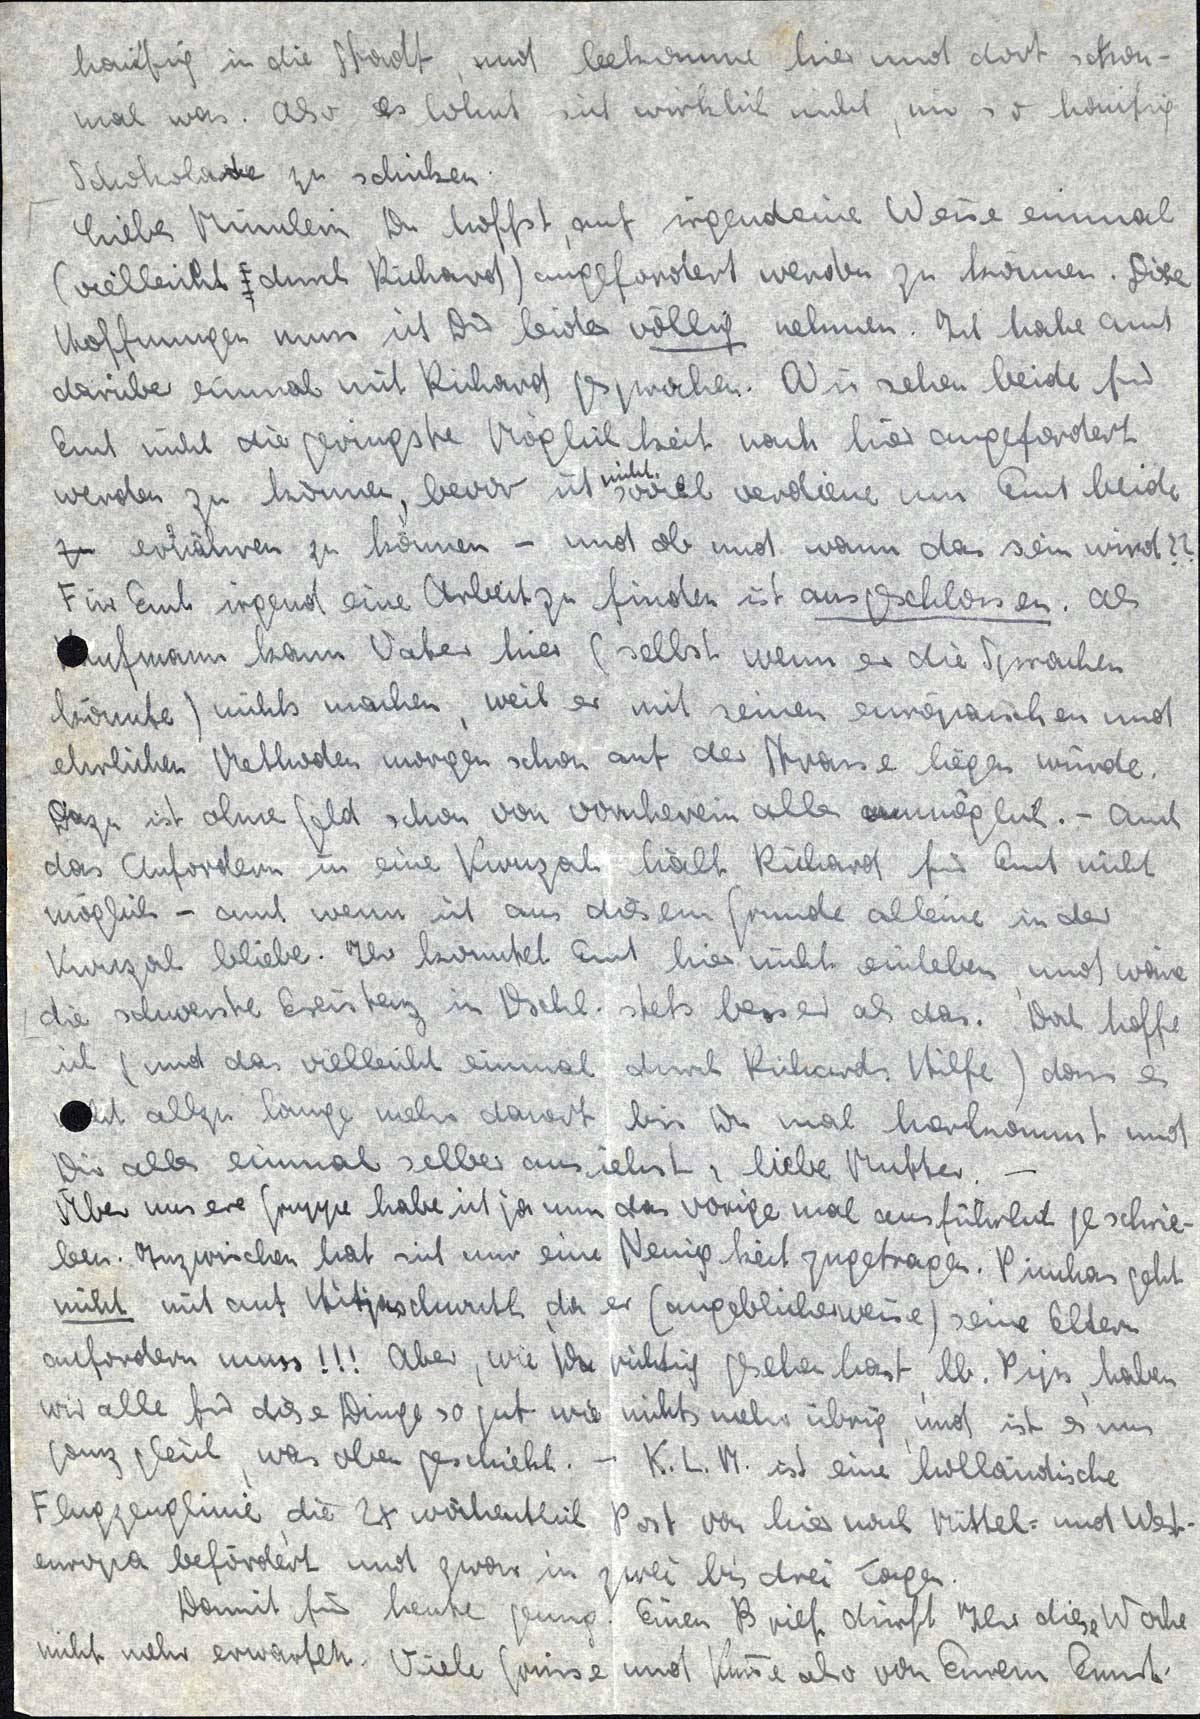 häufig in die Stadt, und bekomme hier und dort schon-
mal was. Also es lohnt sich wirklich nicht, mir so häufig
Schokolade zu schicken.
Liebes Mümlein Du hoffst, auf irgendeine Weise einmal
(vielleicht durch Richard) angefordert werden zu können. Diese
Hoffnungen muss ich Dir leider völlig nehmen. Ich habe auch
darüber einmal mit Richard gesprochen. Wir sehen beide für
Euch nicht die geringste Möglichkeit nach hier angefordert
werden zu können, bevor ich nicht soviel verdiene um Euch beide
zu ernähren zu können - und ob und wann das sein wird??
Für Euch irgend eine Arbeit zu finden ist ausgeschlossen. Als
Kaufmann kann Vater hier (selbst wenn er die Sprachen
könnte) nichts machen, weil er mit seinen europäischen und
ehrlichen Methoden morgen schon auf der Strasse liegen würde.
Dazu ist ohne Geld schon von vornherein alles unmöglich. - Auch
das Anfordern in eine Kwuzah hält Richard für Euch nicht
möglich - auch wenn ich aus diesem Grunde alleine in der
Kwuzah bliebe. Ihr könntet Euch hier nicht einleben, und wäre
die schwerste Existenz in Dschl. stets besser als das. Doch hoffe
ich (und das vielleicht einmal durch Richards Hilfe) dass es
nicht allzu lange mehr dauert bis Du mal herkommst und
Dir alles einmal selber ansiehst, liebe Mutter. -
Über unsere Gruppe habe ich ja nun das vorige mal ausführlich geschrie-
ben. Inzwischen hat sich nur eine Neuigkeit zugetragen. Pinchas geht
nicht mit auf Hitjaschwuth, da er (angeblicherweise) seine Eltern
anfordern muss!!! Aber, wie Du richtig gesehen hast, lb. Pips, haben
wir alle für diese Dinge so gut wie nichts mehr übrig, und ist es uns
ganz gleich, was oben geschieht. - K.L.M. ist eine holländische
Flugzeuglinie, die 2x wöchentlich Post von hier nach Mittel- und West-
europa befördert und zwar in zwei bis drei Tagen.
Damit für heute genug. Einen Brief dürft Ihr diese Woche
nicht mehr erwarten. Viele Grüsse und Küsse also von Eurem Ernst.